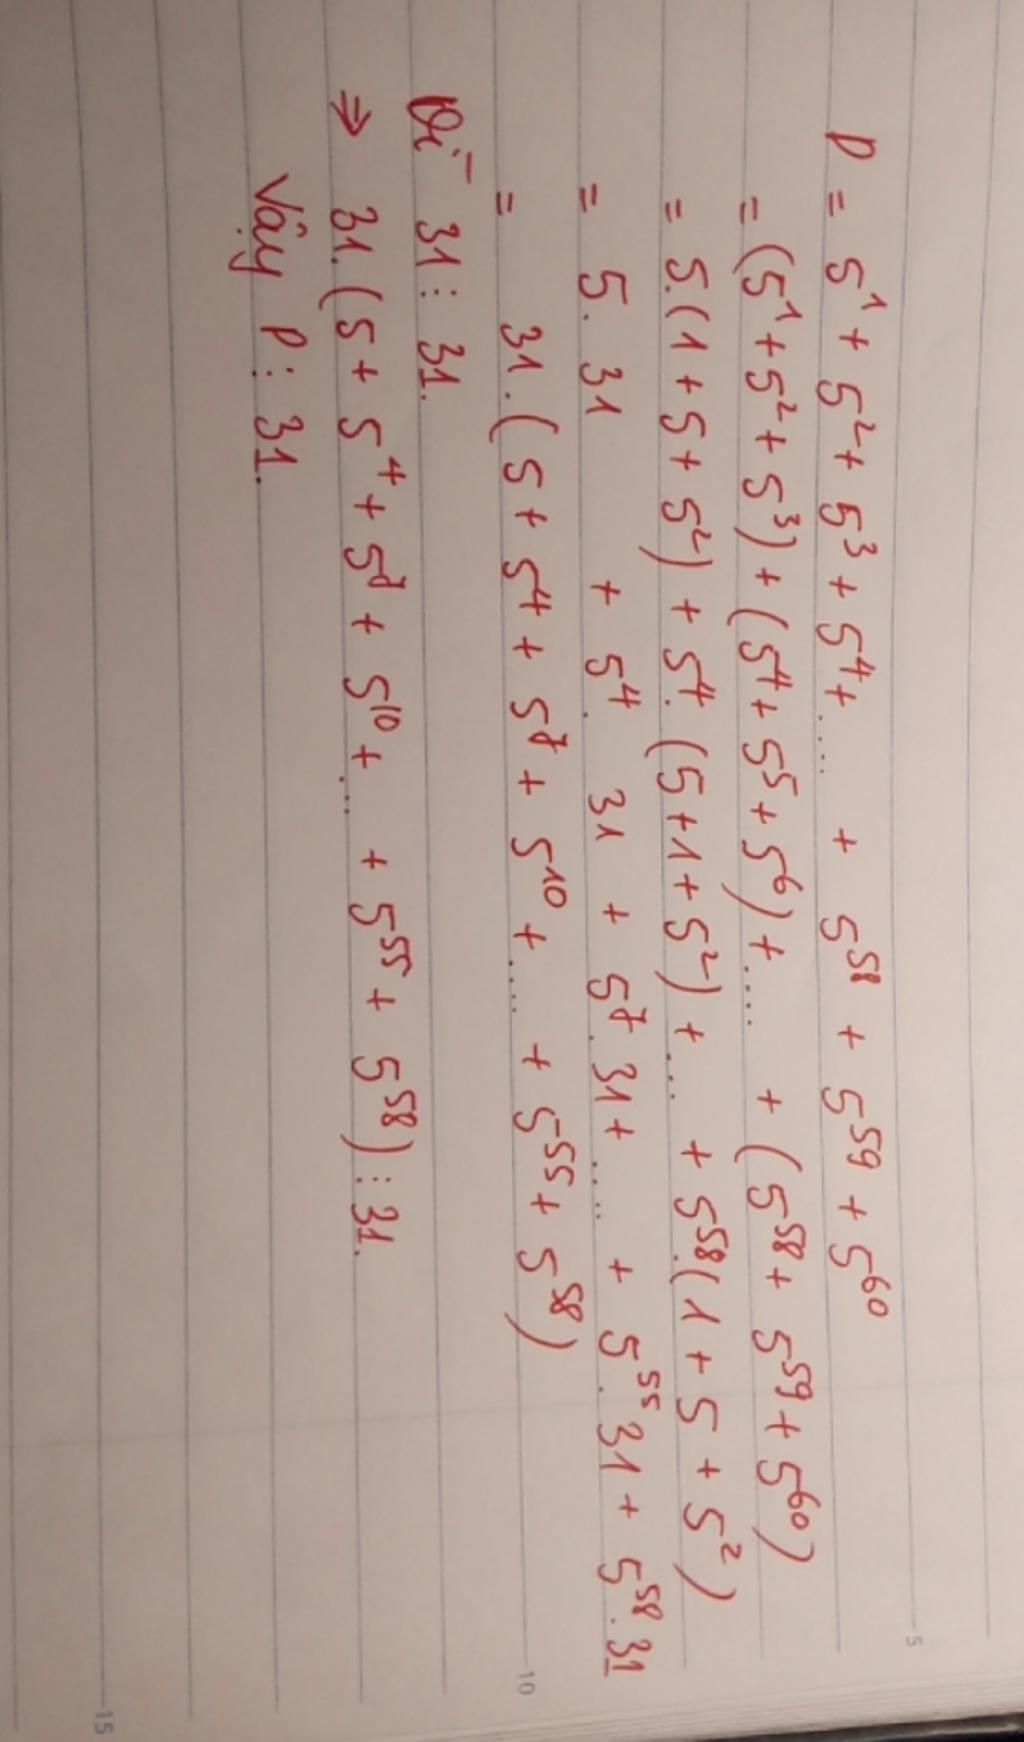 P = 5¹ + 5² + 5³ + 5⁴ + .... + 5⁵⁸ + 5⁵⁹ + 5⁶⁰
= (5¹ + 5² + 5³) + (5⁴ + 5⁵ + 5⁶) + .... + (5⁵⁸ + 5⁵⁹ + 5⁶⁰)
= 5.(1 + 5 + 5²) + 5⁴.(5 + 1 + 5²) + ... + 5⁵⁸.(1 + 5 + 5²)
= 5. 31 + 5⁴. 31 + 5⁷. 31 + .... + 5⁵⁵. 31 + 5⁵⁸. 31
= 31. (5 + 5⁴ + 5⁷ + 5¹⁰ + .... + 5⁵⁵ + 5⁵⁸)
Vì 31 ⋮ 31.
⇒ 31. (5 + 5⁴ + 5⁷ + 5¹⁰ + ... + 5⁵⁵ + 5⁵⁸) ⋮ 31.
Vậy P ⋮ 31.
5
10
15